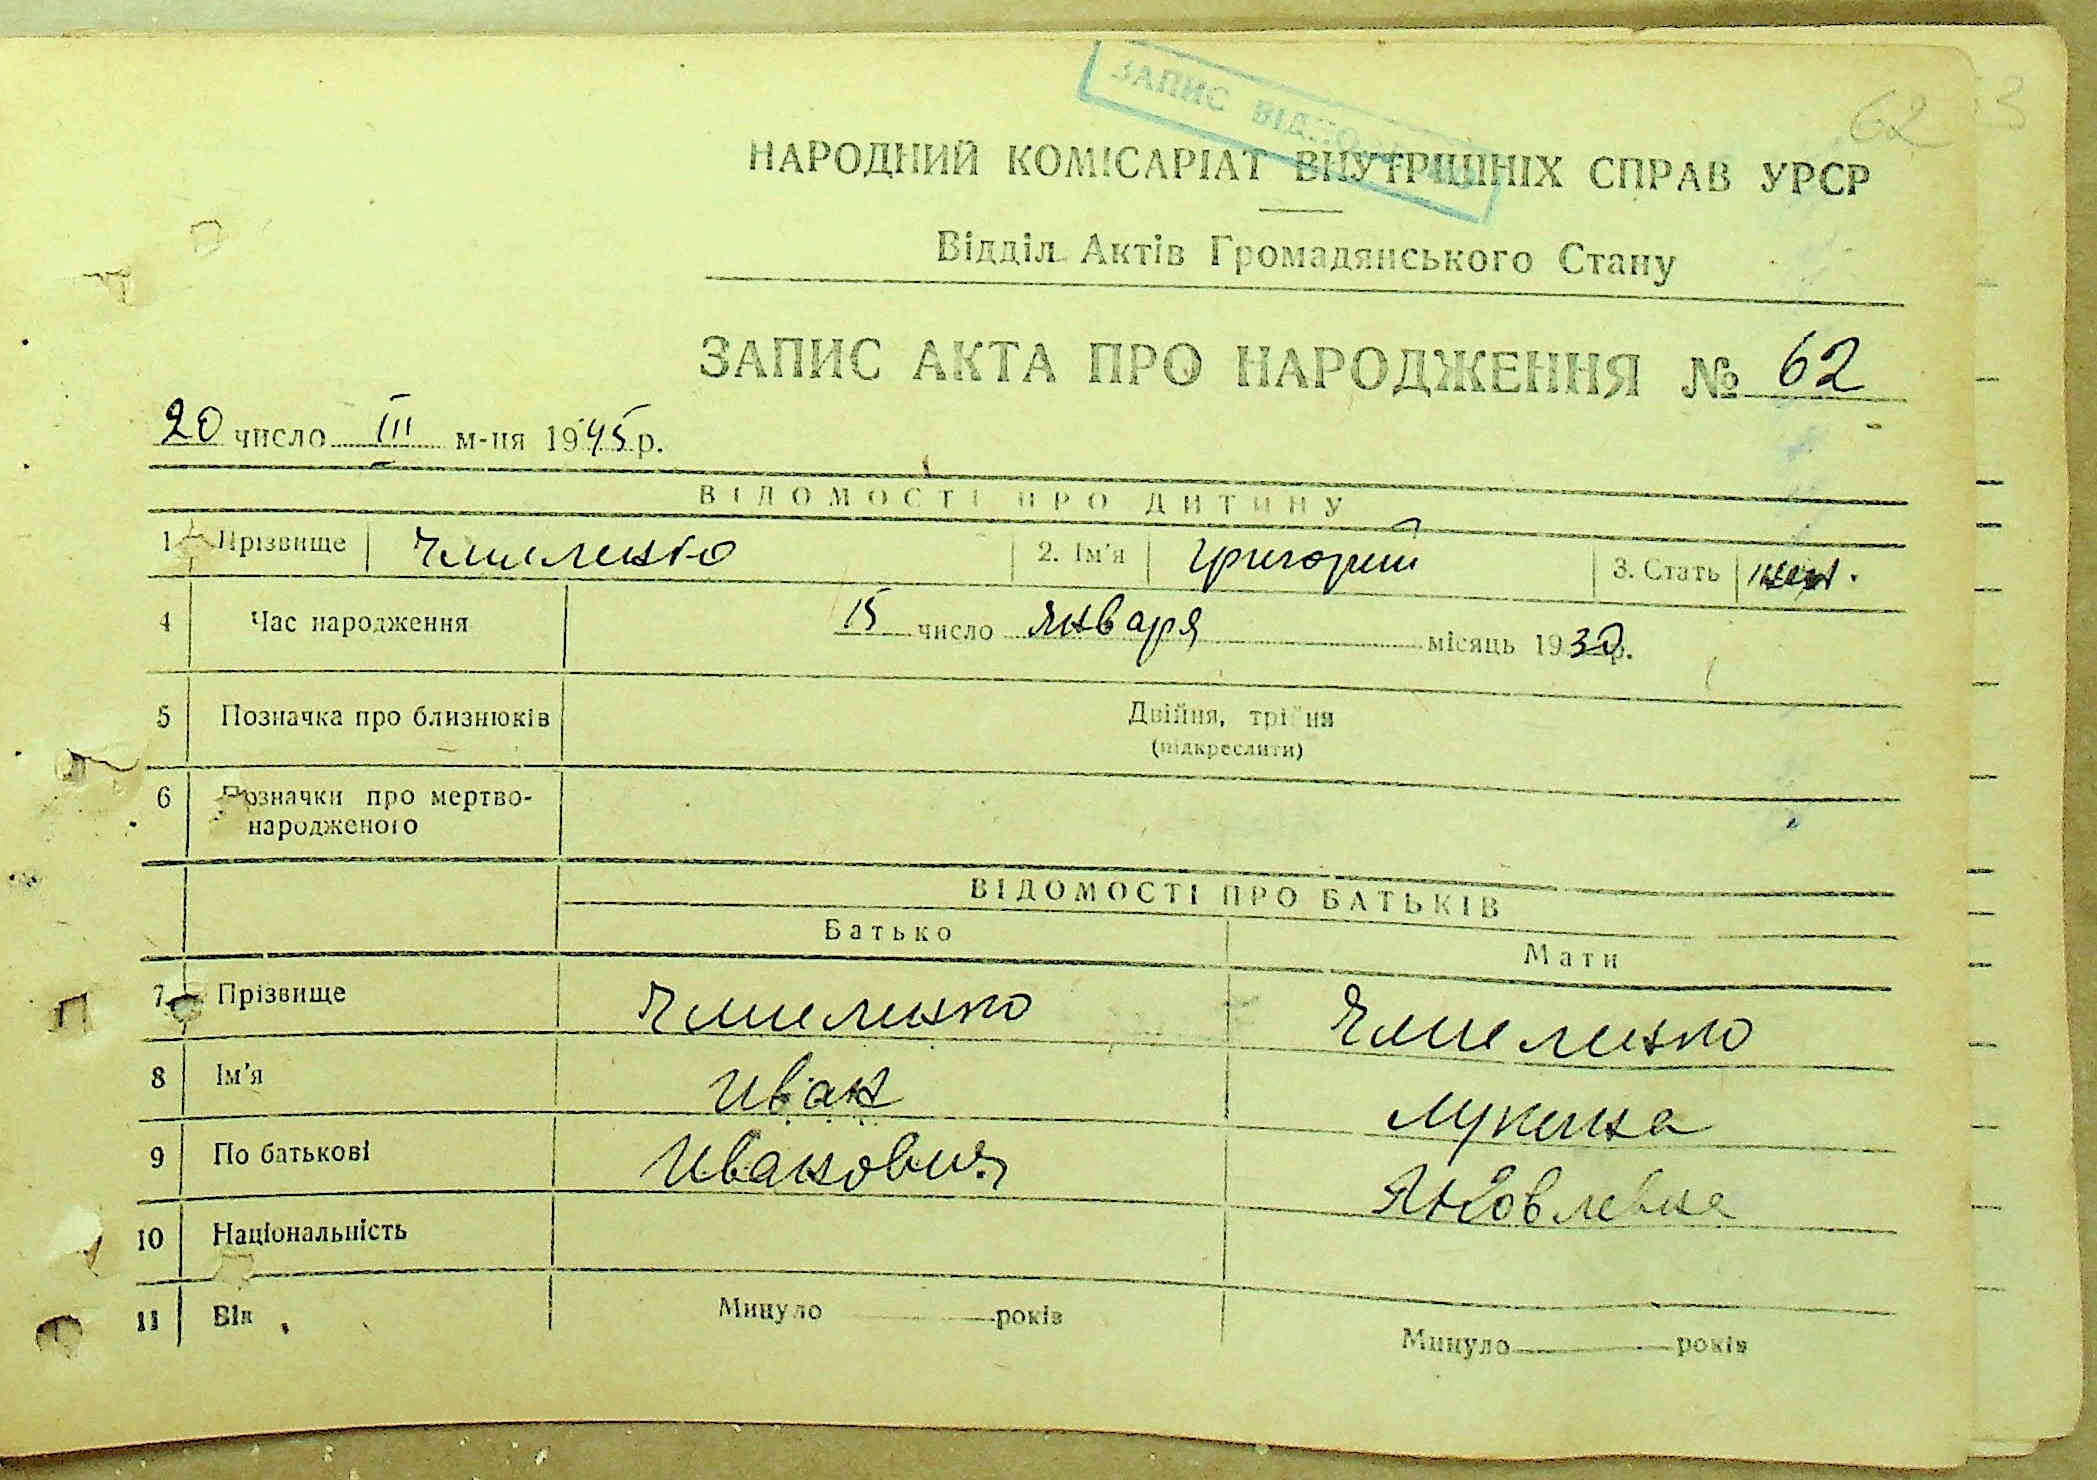 62
ЗАПИС
НАРОДНИЙ КОМІСАРІАТ ВНУТРІШНІХ СПРАВ УРСР
Відділ Актів Громадянського Стану
ЗАПИС АКТА ПРО НАРОДЖЕННЯ № 62
20 число III м-ця 1945 р.
ВІДОМОСТІ ПРО ДИТИНУ
1 Прізвище 2. Ім'я Григорий 3. Стать
4 Час народження 15 число января місяць 1930 р.
5 Позначка про близнюків Двійня, трійня
(підкреслити)
6 Позначки про мертво-
народженого
ВІДОМОСТІ ПРО БАТЬКІВ
Батько Мати
7 Прізвище
8 Ім'я Иван Лукина
9 По батькові Иванович Яковлевна
10 Національність
11 Вік Минуло років Минуло років